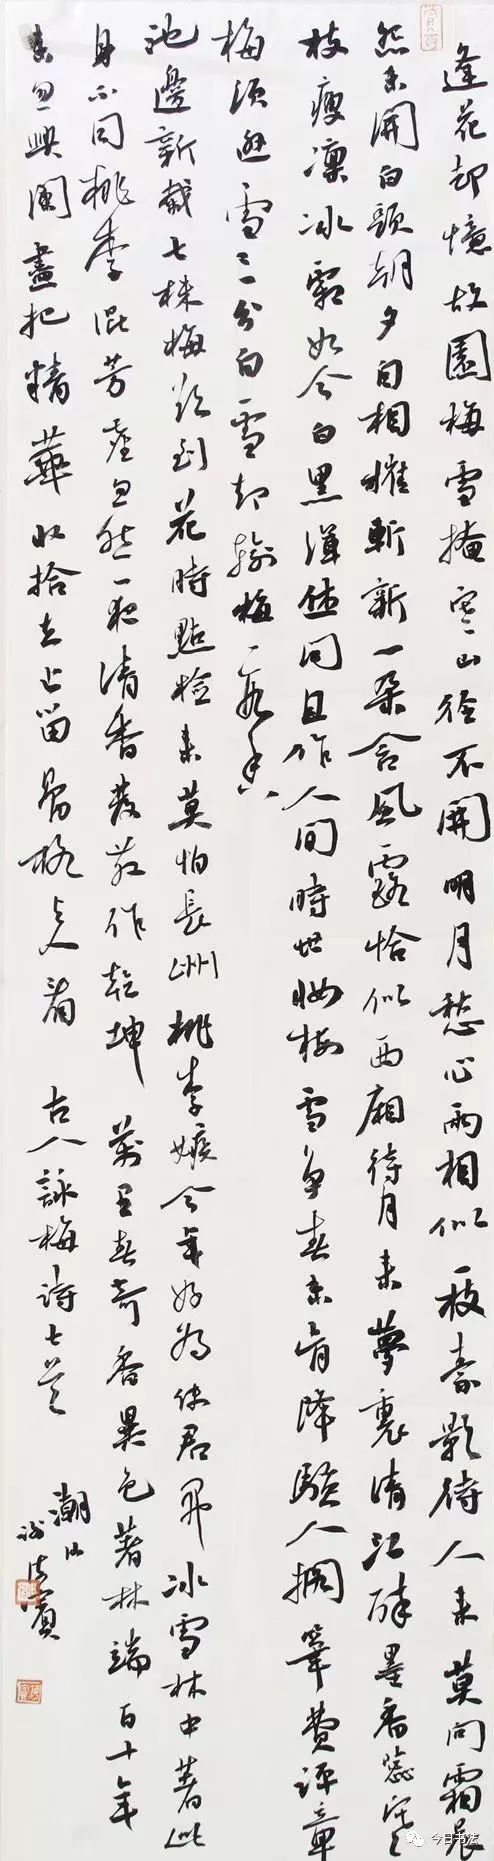 逢花却憶故園梅雪掩寒山徑不開明月愁心兩相似一枝素影待人來莫问霜晨
怨未開白頭朝夕自相摧斬新一朵含風露恰似西廂待月来夢裏清江醉墨香蕊寒
枝瘦凛冰霜如今白黑渾休问且作人间時世妝梅雪争春未肯降騷人搁筆費評章
梅须逊雪三分白雪却输梅一段香
池邊新栽七株梅欲到花時點檢来莫怕長洲桃李嫉今年好为使君開冰雪林中著此
身不同桃李混芳塵忽然一夜清香發散作乾坤萬里春奇香異色著林端百十年
来忽興阑盡把精華收拾去止留骨格与人看 古人詠梅诗七首
潮汕
今日书法